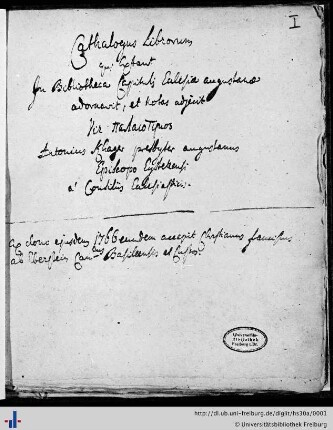 I
Cathalogus Librorum
qui Extant
In Bibliotheca Capituli Ecclesiæ augustanæ
adornavit, et notas adjecit
Vir παλαιοτιμος
Antonius Mayer presbyter augustanus
Episcopo Eystetensi
a Consiliis Ecclesiasticis.
Ex dono ejusdem 1766 eundem accepit Christianus franciscus
ab Eberstein Can:cus Basileensis et Custos.
Universitäts-
Bibliothek
Freiburg i. Br.
http://dl.ub.uni-freiburg.de/diglit/hs30a/0001
© Universitätsbibliothek Freiburg